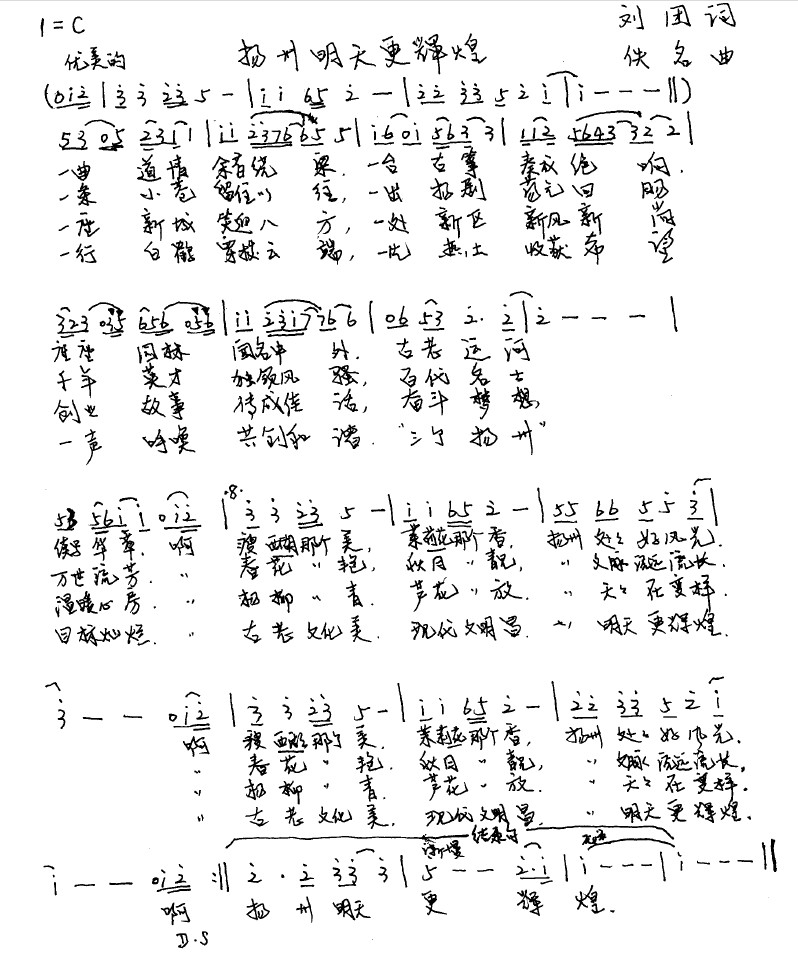 1=C 刘团词
优美的 扬州明天更辉煌 佚名曲
(0 i 2 | 3 3 2 3 5 - | i i 6 5 2 - | 2 2 3 3 5 2 i | i - - - ‖)
5 3 0 5 2 3 1 1 | i i 2 3 7 6 6 5 5 | i 6 0 i 5 6 3 3 | 1 1 2 5 6 4 3 3 2 2 |
一曲 道情 余音绕 梁. 一台 古筝 奏放绝 响.
一条 小巷 留住 往, 一出 扬剧 回肠
一座 新城 笑迎八 方, 一处 新区 新风新 尚
一行 白鹤 穿梭云 端, 一片 热土 收获希 望
3 2 3 0 3 5 6 5 6 0 5 6 | i i 2 3 i 7 7 6 6 | 0 6 5 3 2 · 2 | 2 - - - |
座座 园林 闻名中 外. 古老 运河
千年 英才 独领风 骚, 百代 名士
创业 故事 传成佳 话, 奋斗 梦想,
一声 呼唤 共创和 谐. "三个 扬州"
5 3 5 6 i i 0 i 2 | .8. 3 3 2 3 5 - | i i 6 5 2 - | 5 5 6 6 5 5 3 |
续写华章. 啊 瘦西湖那个 美, 茉莉花那个 香, 扬州 处处 好风光.
万世流芳. 〃 春花 〃 艳, 秋月 〃 靓, 〃 文脉 流远流长.
温暖心房. 〃 杨柳 〃 青. 芦花 〃 放. 〃 天天 在变样.
目标灿烂. 〃 古老文化 美. 现代文明 昌. 〃 明天 更辉煌.
3 - - 0 i 2 | 3 3 2 3 5 - | i i 6 5 2 - | 2 2 3 3 5 2 i
啊 瘦西湖那个 美. 茉莉花那个 香, 扬州 处处 好风光.
〃 春花 〃 艳. 秋月 〃 靓, 〃 文脉 流远流长.
〃 杨柳 〃 青. 芦花 〃 放. 〃 天天 在变样.
〃 古老文化 美. 现代文明 昌. 〃 明天 更辉煌.
渐慢 结束句
i - - 0 i 2 :‖ 2 · 2 3 3 3 | 5 - - 2 · i | i - - - | i - - - ‖
啊 扬州 明天 更 辉 煌.
D.S